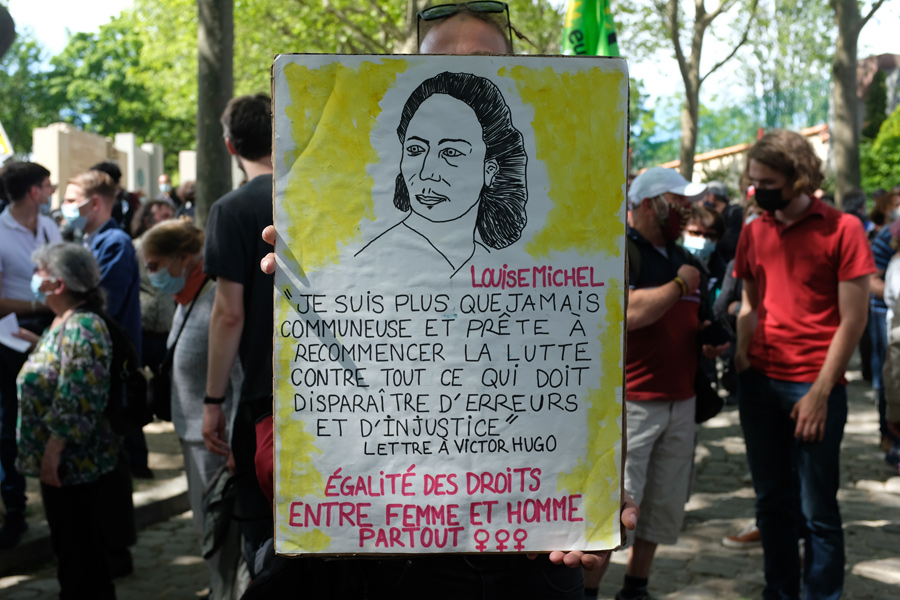 LOUISE MICHEL
"JE SUIS PLUS QUE JAMAIS
COMMUNEUSE ET PRÊTE À
RECOMMENCER LA LUTTE
CONTRE TOUT CE QUI DOIT
DISPARAÎTRE D'ERREURS
ET D'INJUSTICE"
LETTRE À VICTOR HUGO
ÉGALITÉ DES DROITS
ENTRE FEMME ET HOMME
PARTOUT ♀♀♀